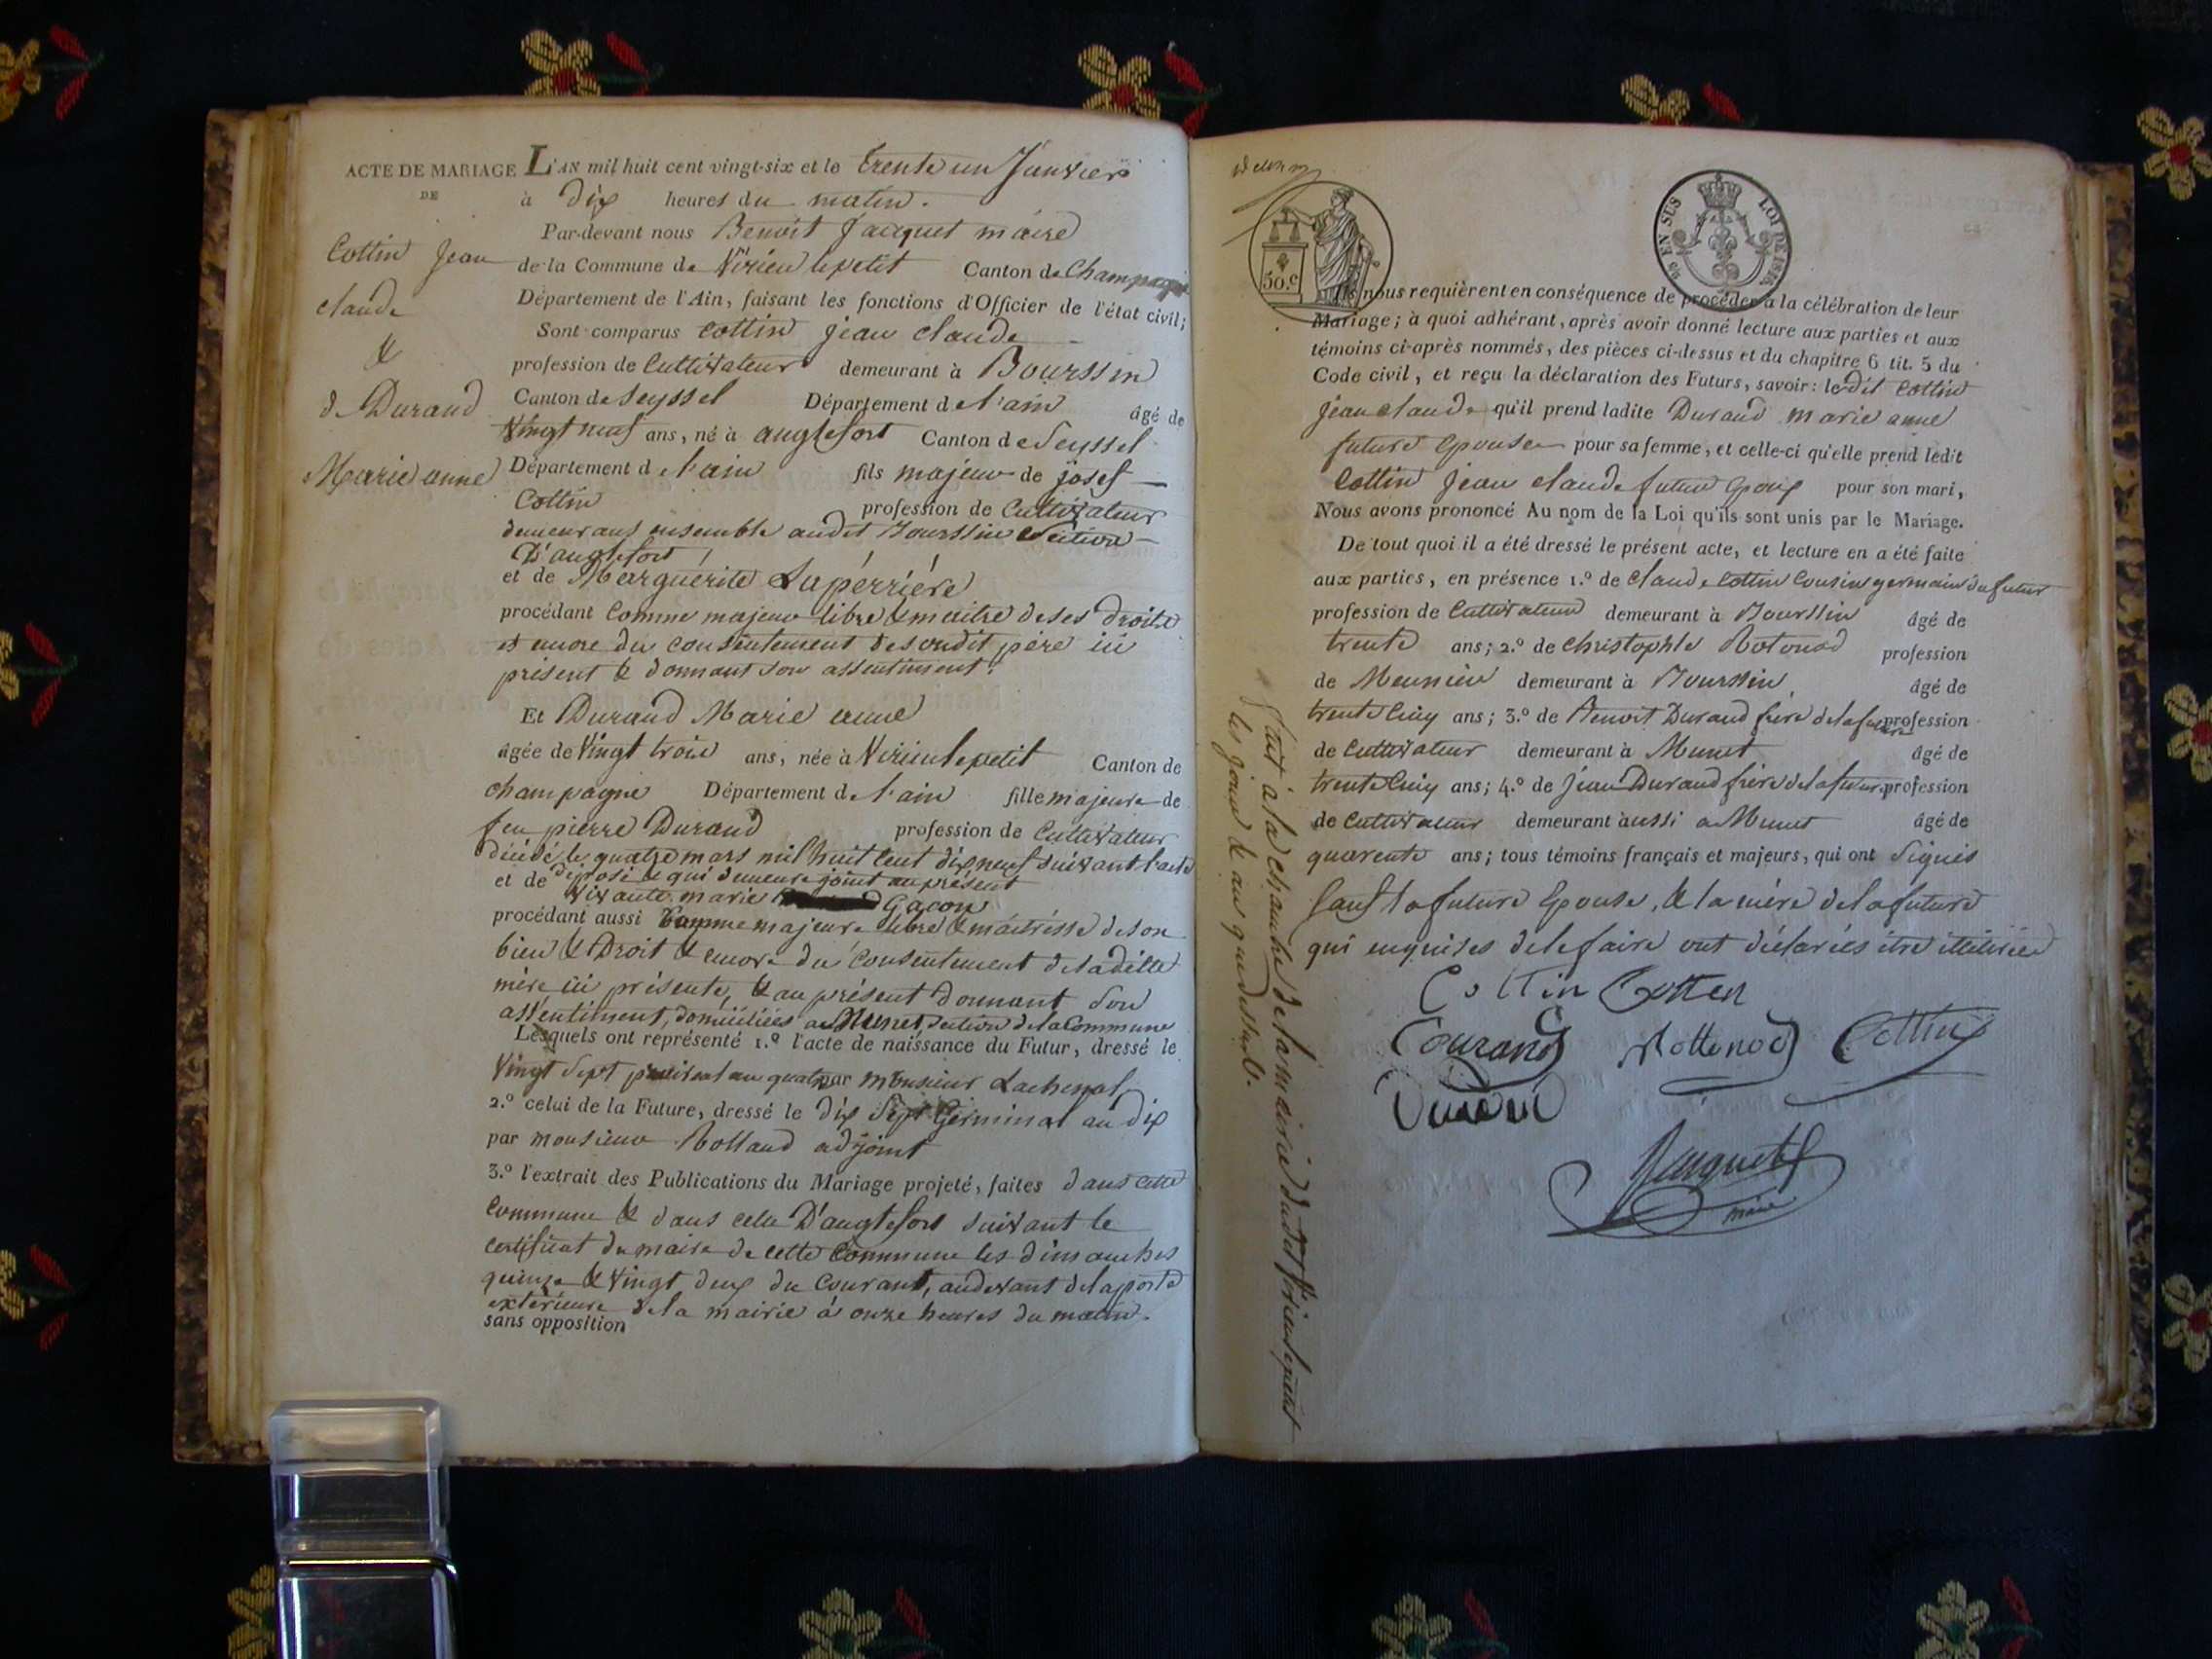 ACTE DE MARIAGE
DE
Cottin Jean
claude
&
d. Durand
Marie anne
L'AN mil huit cent vingt-six et le trente un Janvier
à dix heures du matin.
Par-devant nous Benoit Jacquet maire
de la Commune de Virieu le petit Canton de Champagne
Département de l'Ain, faisant les fonctions d'Officier de l'état civil;
Sont comparus Cottin jean claude
profession de Cultivateur demeurant à Bourssin
Canton de Seyssel Département de l'ain âgé de
Vingt neuf ans, né à anglefort Canton de Seyssel
Département d l'ain fils majeur de josef
Cottin profession de Cultivateur
demeurans ensemble audit Bourssin Section
D'anglefort
et de Marguerite Lapérrière
procédant Comme majeur libre & maitre de ses droits
et encore du consentement de sondit père ici
présent & donnant son assentiment.
Et Durand Marie anne
âgée de Vingt trois ans, née à Virieu le petit Canton de
champagne Département d l'ain fille majeure de
feu pierre Durand profession de Cultivateur
décédé le quatre mars mil huit cent dix neuf suivant l'acte
déposé & qui demeure joint au présent
et de Vivante marie Gacon
procédant aussi Comme majeure libre & maitrésse de son
bien & Droit & encore du consentement de ladite
mère ici présente, & au présent donnant son
assentiment, domiciliées a Munet Section de la Commune
Lesquels ont représenté 1.º l'acte de naissance du Futur, dressé le
Vingt Sept an quatre par Monsieur Lachenal
2.º celui de la Future, dressé le dix Sept Germinal an dix
par monsieur Rolland adjoint
3.º l'extrait des Publications du Mariage projeté, faites dans cette
Commune & dans celle D'anglefort suivant le
certificat du maire de cette Commune les dimanches
quinze & Vingt deux du Courant, audevant de la porte
extérieure de la mairie à onze heures du matin.
sans opposition
50.c
EN SUS
LOI DE 1816
Ils nous requièrent en conséquence de procéder à la célébration de leur
Mariage; à quoi adhérant, après avoir donné lecture aux parties et aux
témoins ci-après nommés, des pièces ci-dessus et du chapitre 6 tit. 5 du
Code civil, et reçu la déclaration des Futurs, savoir: ledit Cottin
jean claude qu'il prend ladite Durand marie anne
future Epouse pour sa femme, et celle-ci qu'elle prend ledit
Cottin jean claude futur Epoux pour son mari,
Nous avons prononcé Au nom de la Loi qu'ils sont unis par le Mariage.
De tout quoi il a été dressé le présent acte, et lecture en a été faite
aux parties, en présence 1.º de Claude Cottin Cousin germain du futur
profession de Cultivateur demeurant à Bourssin âgé de
trente ans; 2.º de Christophle Rotonod profession
de Meunier demeurant à Bourssin âgé de
trente Cinq ans; 3.º de Benoit Durand frère de la future profession
de Cultivateur demeurant à Munet âgé de
trente Cinq ans; 4.º de Jean Durand frère de la future profession
de Cultivateur demeurant aussi a Munet âgé de
quarente ans; tous témoins français et majeurs, qui ont Signés
Sauf la future Epouse, & la mère de la future
qui enquises de le faire ont déclariés être illitirées
Cottin Cotten
Durand Rottonod Cottin
Durand
Jacquet
maire
Fait à la chambre de la mairie dudit Virieu le petit
les jour & an que dessus.